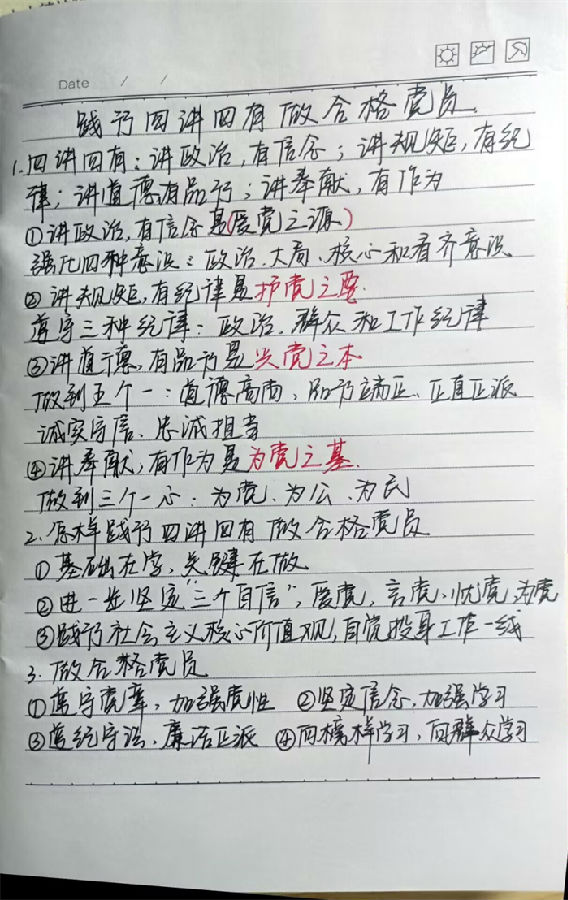 Date / /
践行四讲四有做合格党员
1.四讲四有:讲政治,有信念;讲规矩,有纪
律;讲道德有品行;讲奉献,有作为
①讲政治,有信念是(爱党之源)
强化四种意识:政治、大局、核心和看齐意识
②讲规矩,有纪律是护党之要.
遵守三种纪律:政治、群众和工作纪律
③讲道德,有品行是兴党之本
做到五个一:道德高尚,品行端正、正直正派
诚实守信、忠诚担当
④讲奉献,有作为是为党之基.
做到三个一心:为党、为公、为民
2.怎样践行四讲四有做合格党员
①基础在学,关键在做
②进一步坚定"三个自信",爱党,言党、忧党、为党
③践行社会主义核心价值观,自觉投身工作一线
3.做合格党员
①遵守党章,加强党性 ②坚定信念,加强学习
③遵纪守法、廉洁正派 ④向榜样学习,向群众学习